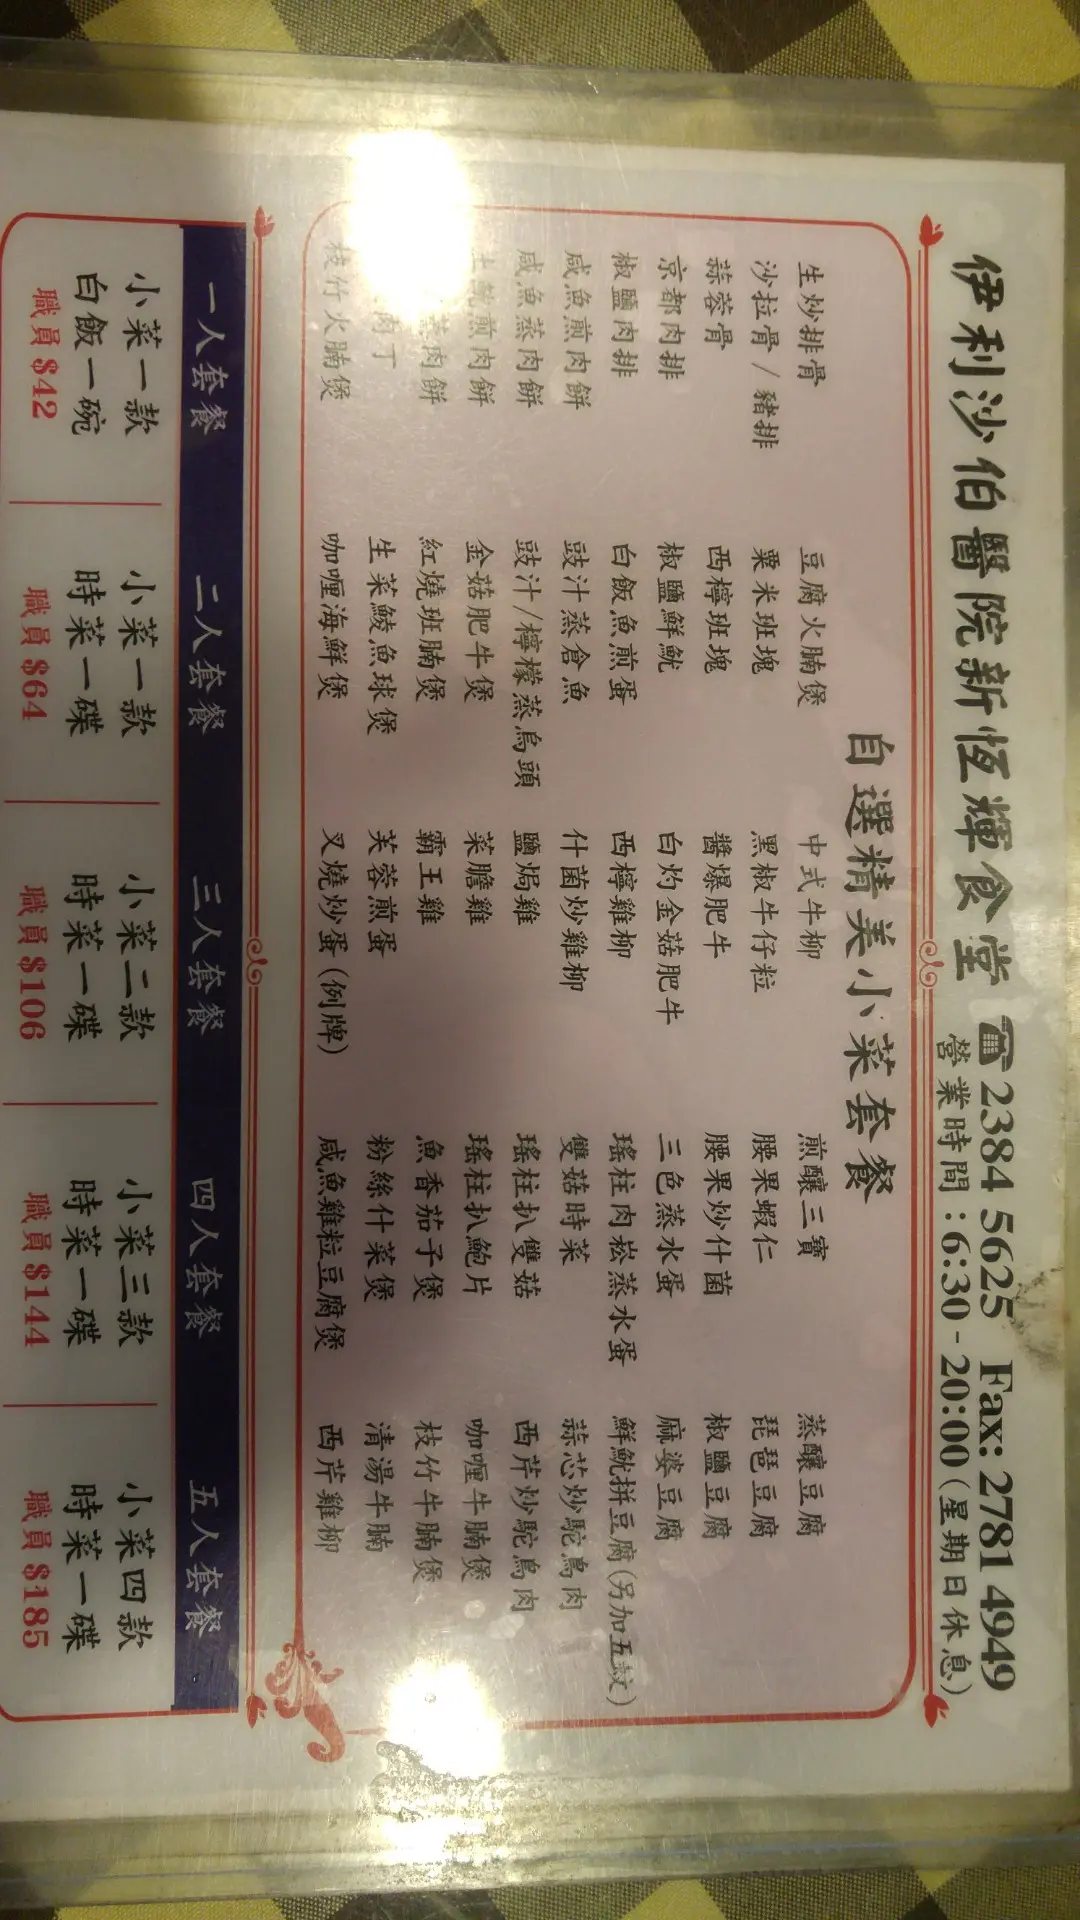 伊利沙伯醫院新恆輝食堂 ☎2384 5625 Fax: 2781 4949
營業時間：6:30 - 20:00 (星期日休息)
自選精美小菜套餐
生炒排骨
沙拉骨 / 豬排
蒜蓉骨
京都肉排
椒鹽肉排
咸魚煎肉餅
咸魚蒸肉餅
魷煎肉餅
蒸肉餅
肉丁
枝竹火腩煲
豆腐火腩煲
粟米班塊
西檸班塊
椒鹽鮮魷
白飯魚煎蛋
豉汁蒸倉魚
豉汁/檸檬蒸烏頭
金菇肥牛煲
紅燒班腩煲
生菜鯪魚球煲
咖喱海鮮煲
中式牛柳
黑椒牛仔粒
醬爆肥牛
白灼金菇肥牛
西檸雞柳
什菌炒雞柳
鹽焗雞
菜膽雞
霸王雞
芙蓉煎蛋
叉燒炒蛋 (例牌)
煎釀三寶
腰果蝦仁
腰果炒什菌
三色蒸水蛋
瑤柱肉崧蒸水蛋
雙菇時菜
瑤柱扒雙菇
瑤柱扒鮑片
魚香茄子煲
粉絲什菜煲
咸魚雞粒豆腐煲
蒸釀豆腐
琵琶豆腐
椒鹽豆腐
麻婆豆腐
鮮魷拼豆腐(另加五蚊)
蒜芯炒鴕鳥肉
西芹炒鴕鳥肉
咖喱牛腩煲
枝竹牛腩煲
清湯牛腩
西芹雞柳
一人套餐
小菜一款
白飯一碗
職員 $42
二人套餐
小菜一款
時菜一碟
職員 $64
三人套餐
小菜二款
時菜一碟
職員 $106
四人套餐
小菜三款
時菜一碟
職員 $144
五人套餐
小菜四款
時菜一碟
職員 $185